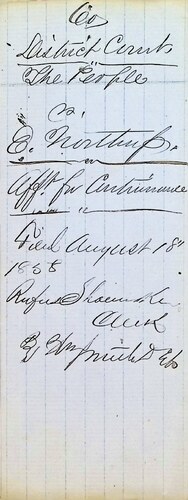 Co
District Court
The People
vs.
E. Northup.
Afft for Continuance
Filed August 18th
1858
Rufus Shoemaker
Clerk
By Wm Smith D